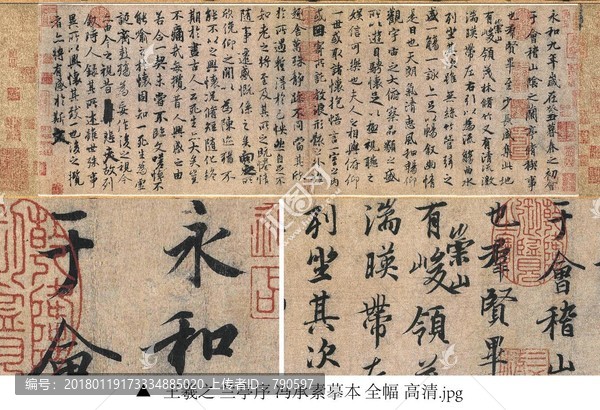 永和九年歲在癸丑暮春之初會
于會稽山陰之蘭亭脩稧事
也羣賢畢至少長咸集此地
有崇山峻領茂林脩竹又有清流激
湍暎帶左右引以為流觴曲水
列坐其次雖無絲竹管弦之
盛一觴一詠亦足以暢敘幽情
是日也天朗氣清惠風和暢仰
觀宇宙之大俯察品類之盛
所以遊目騁懷足以極視聽之
娛信可樂也夫人之相與俯仰
一世或取諸懷抱悟言一室之內
或因寄所託放浪形骸之外雖
趣舍萬殊靜躁不同當其欣
於所遇蹔得於己怏然自足不
知老之將至及其所之既惓情
隨事遷感慨係之矣向之所
欣俛仰之閒以為陳迹猶不
能不以之興懷況脩短隨化終
期於盡古人云死生亦大矣豈
不痛哉每攬昔人興感之由
若合一契未嘗不臨文嗟悼不
能喻之於懷固知一死生為虛
誕齊彭殤為妄作後之視今
亦由今之視昔悲夫故列
敘時人錄其所述雖世殊事
異所以興懷其致一也後之攬
者亦將有感於斯文
永和
于會
于會稽山
也羣賢畢
有崇山峻領
湍暎帶
列坐其次
编号：20180119173334885020 上传者ID：790597
▲ 王羲之 兰亭序 冯承素摹本 全幅 高清.jpg